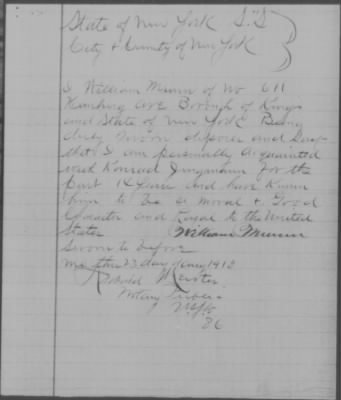 State of New York S.S
City & County of New York
I William Munn of No 611
Hamburg Ave Borough of Kings
and State of New York Being
duly Sworn deposes and Says
that I am personally acquainted
with Konrad Jungmann for the
Past 14 Years and have Known
him to be a moral & Good
Character and Loyal to the United
States William Munn
Sworn to before
me this 23 day of May 1918
Notary Public